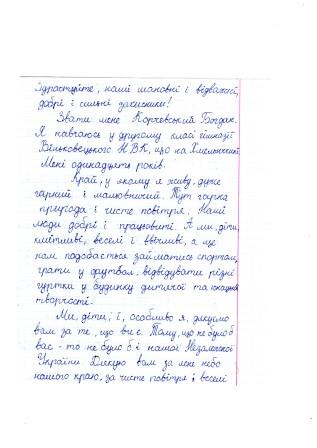 Здраствуйте, наші шановні і відважні,
добрі і сильні захисники!
Звати мене Корчевський Богдан.
Я навчаюсь у другому класі гімназії
Віньковецького НВК, що на Хмельниччині.
Мені одинадцять років.
Край, у якому я живу, дуже
гарний і мальовничий. Тут гарна
природа і чисте повітря. Наші
люди добрі і працьовиті. А ми, діти,
кмітливі, веселі і ввічливі, а ще
нам подобається займатись спортом,
грати у футбол, відвідувати різні
гуртки у будинку дитячої та юнацької
творчості.
Ми, діти, і, особливо я, дякуємо
вам за те, що ви є. Тому, що не було б
вас - то не було б і нашої Незалежної
України Дякую вам за ясне небо
нашого краю, за чисте повітря і веселі